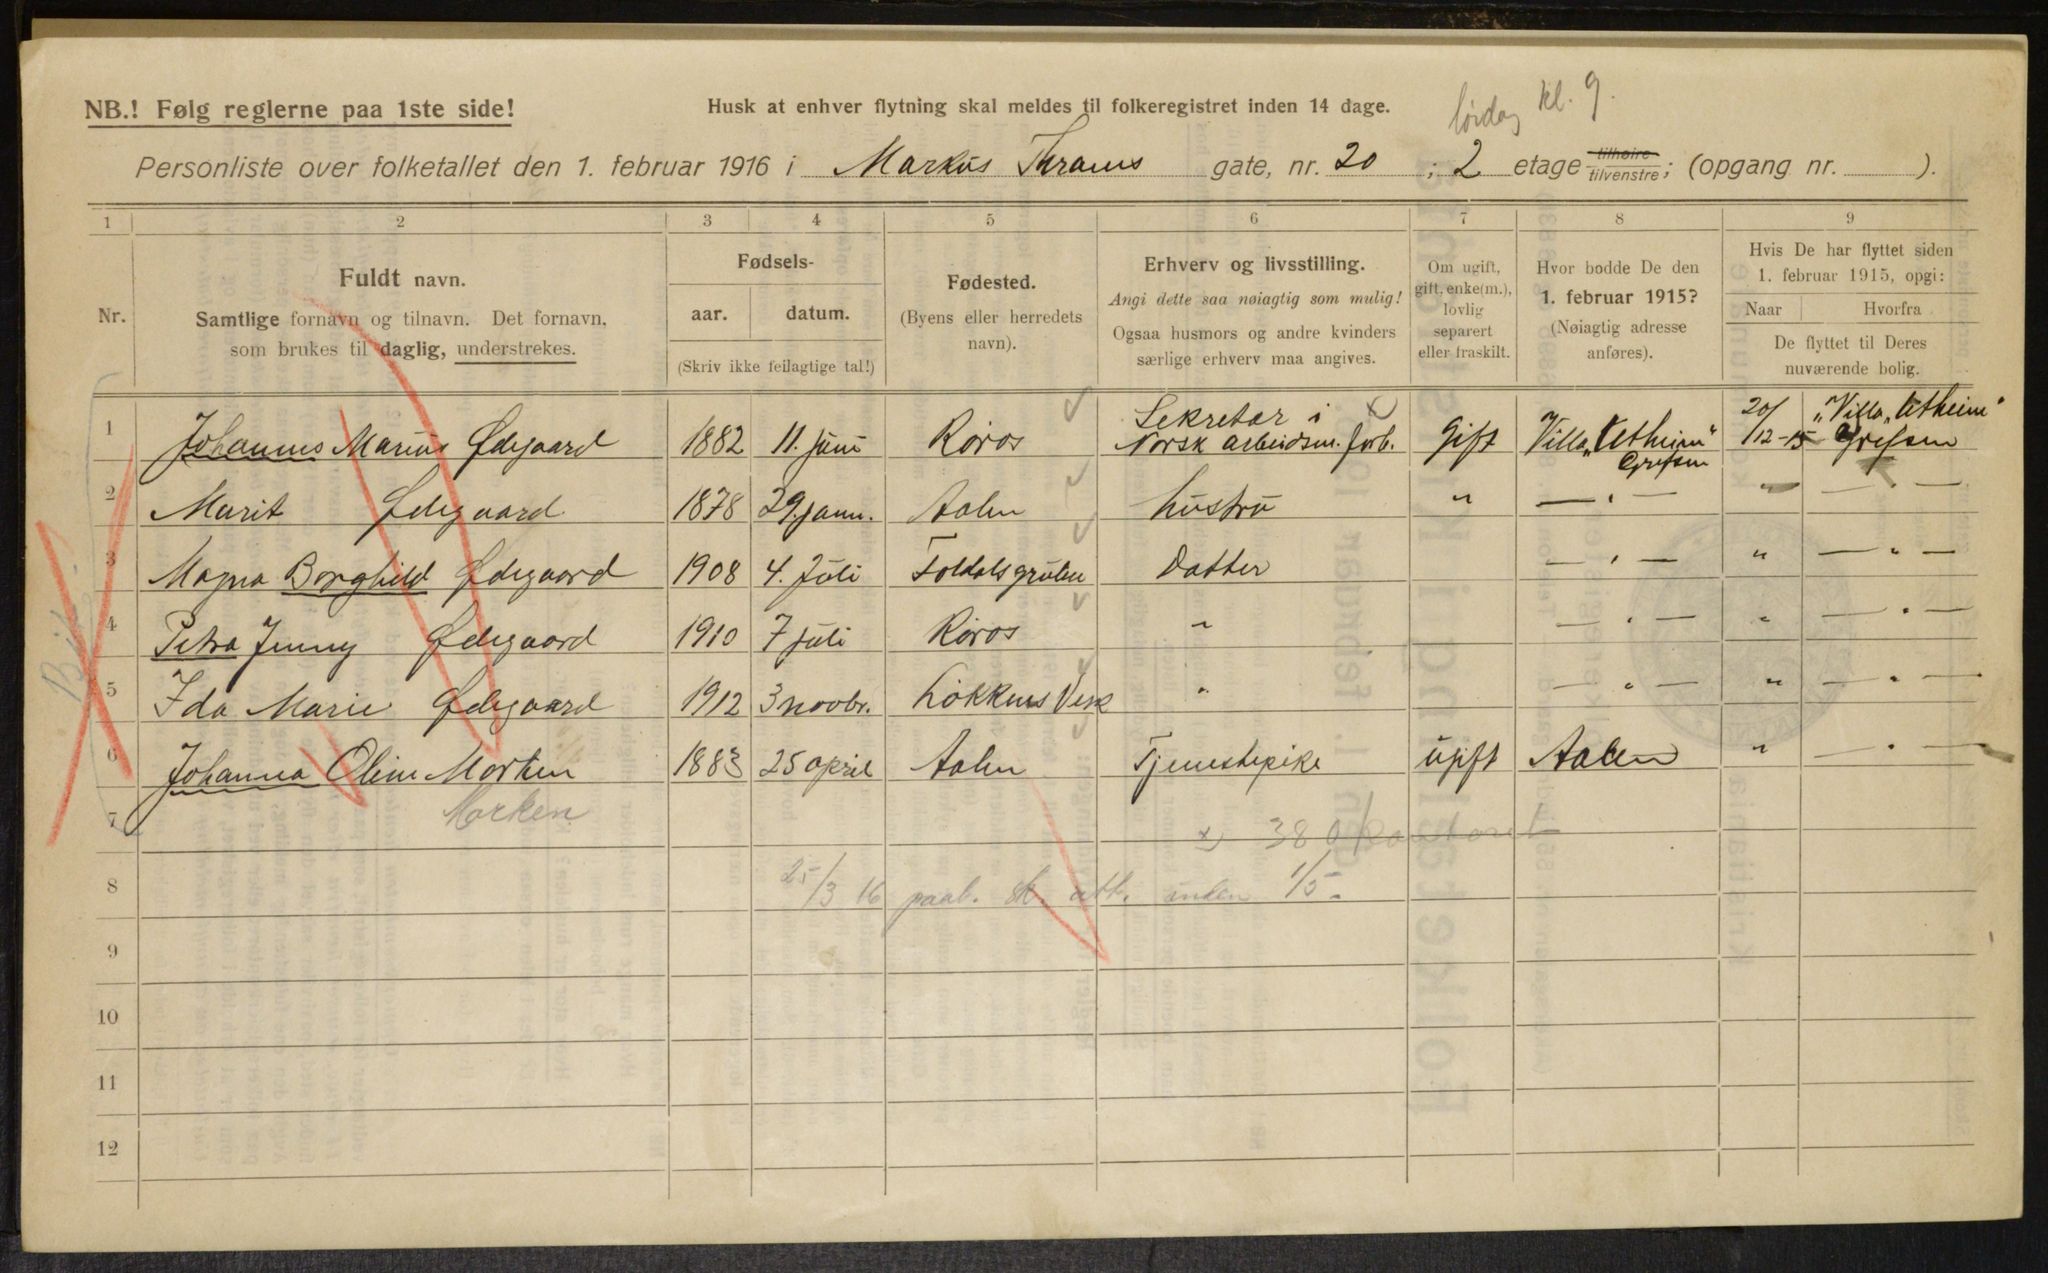 lördag kl. 9.
NB.! Følg reglerne paa 1ste side!
Husk at enhver flytning skal meldes til folkeregistret inden 14 dage.
Personliste over folketallet den 1. februar 1916 i Markus Thranes gate, nr. 20 ; 2 etage tilhøire tilvenstre; (opgang nr. ).
1 2 3 4 5 6 7 8 9
Nr.
Fuldt navn.
Samtlige fornavn og tilnavn. Det fornavn,
som brukes til daglig, understrekes.
Fødsels-
aar. datum.
(Skriv ikke feilagtige tal!)
Fødested.
(Byens eller herredets
navn).
Erhverv og livsstilling.
Angi dette saa nøiagtig som mulig!
Ogsaa husmors og andre kvinders
særlige erhverv maa angives.
Om ugift,
gift, enke(m.),
lovlig
separert
eller fraskilt.
Hvor bodde De den
1. februar 1915?
(Nøiagtig adresse
anføres).
Hvis De har flyttet siden
1. februar 1915, opgi:
Naar Hvorfra
De flyttet til Deres
nuværende bolig.
1 Johannes Marius Ødegaard 1882 11. juni Røros Sekretær i Norsk arbeidsm. forb. Gift Villa „Utheim" Grefsen 20/12-15 „Villa Utheim" Grefsen
2 Marit Ødegaard 1878 29. janu. Aalen hustru " — " — " — " —
3 Magna Borghild Ødegaard 1908 4. Juli Foldalsgruben Datter — " — " — " —
4 Petra Jenny Ødegaard 1910 7 juli Røros " — " — " — " —
5 Ida Marie Ødegaard 1912 3 novbr. Løkkens Verk " — " — " — " —
6 Johanna Oline Morken 1883 25 april Aalen Tjenestepike ugift Aalen " — " —
7 Morken
x) 380 / kontoret
8 25/3 16 paab. sk. att. inden 1/5.
9
10
11
12